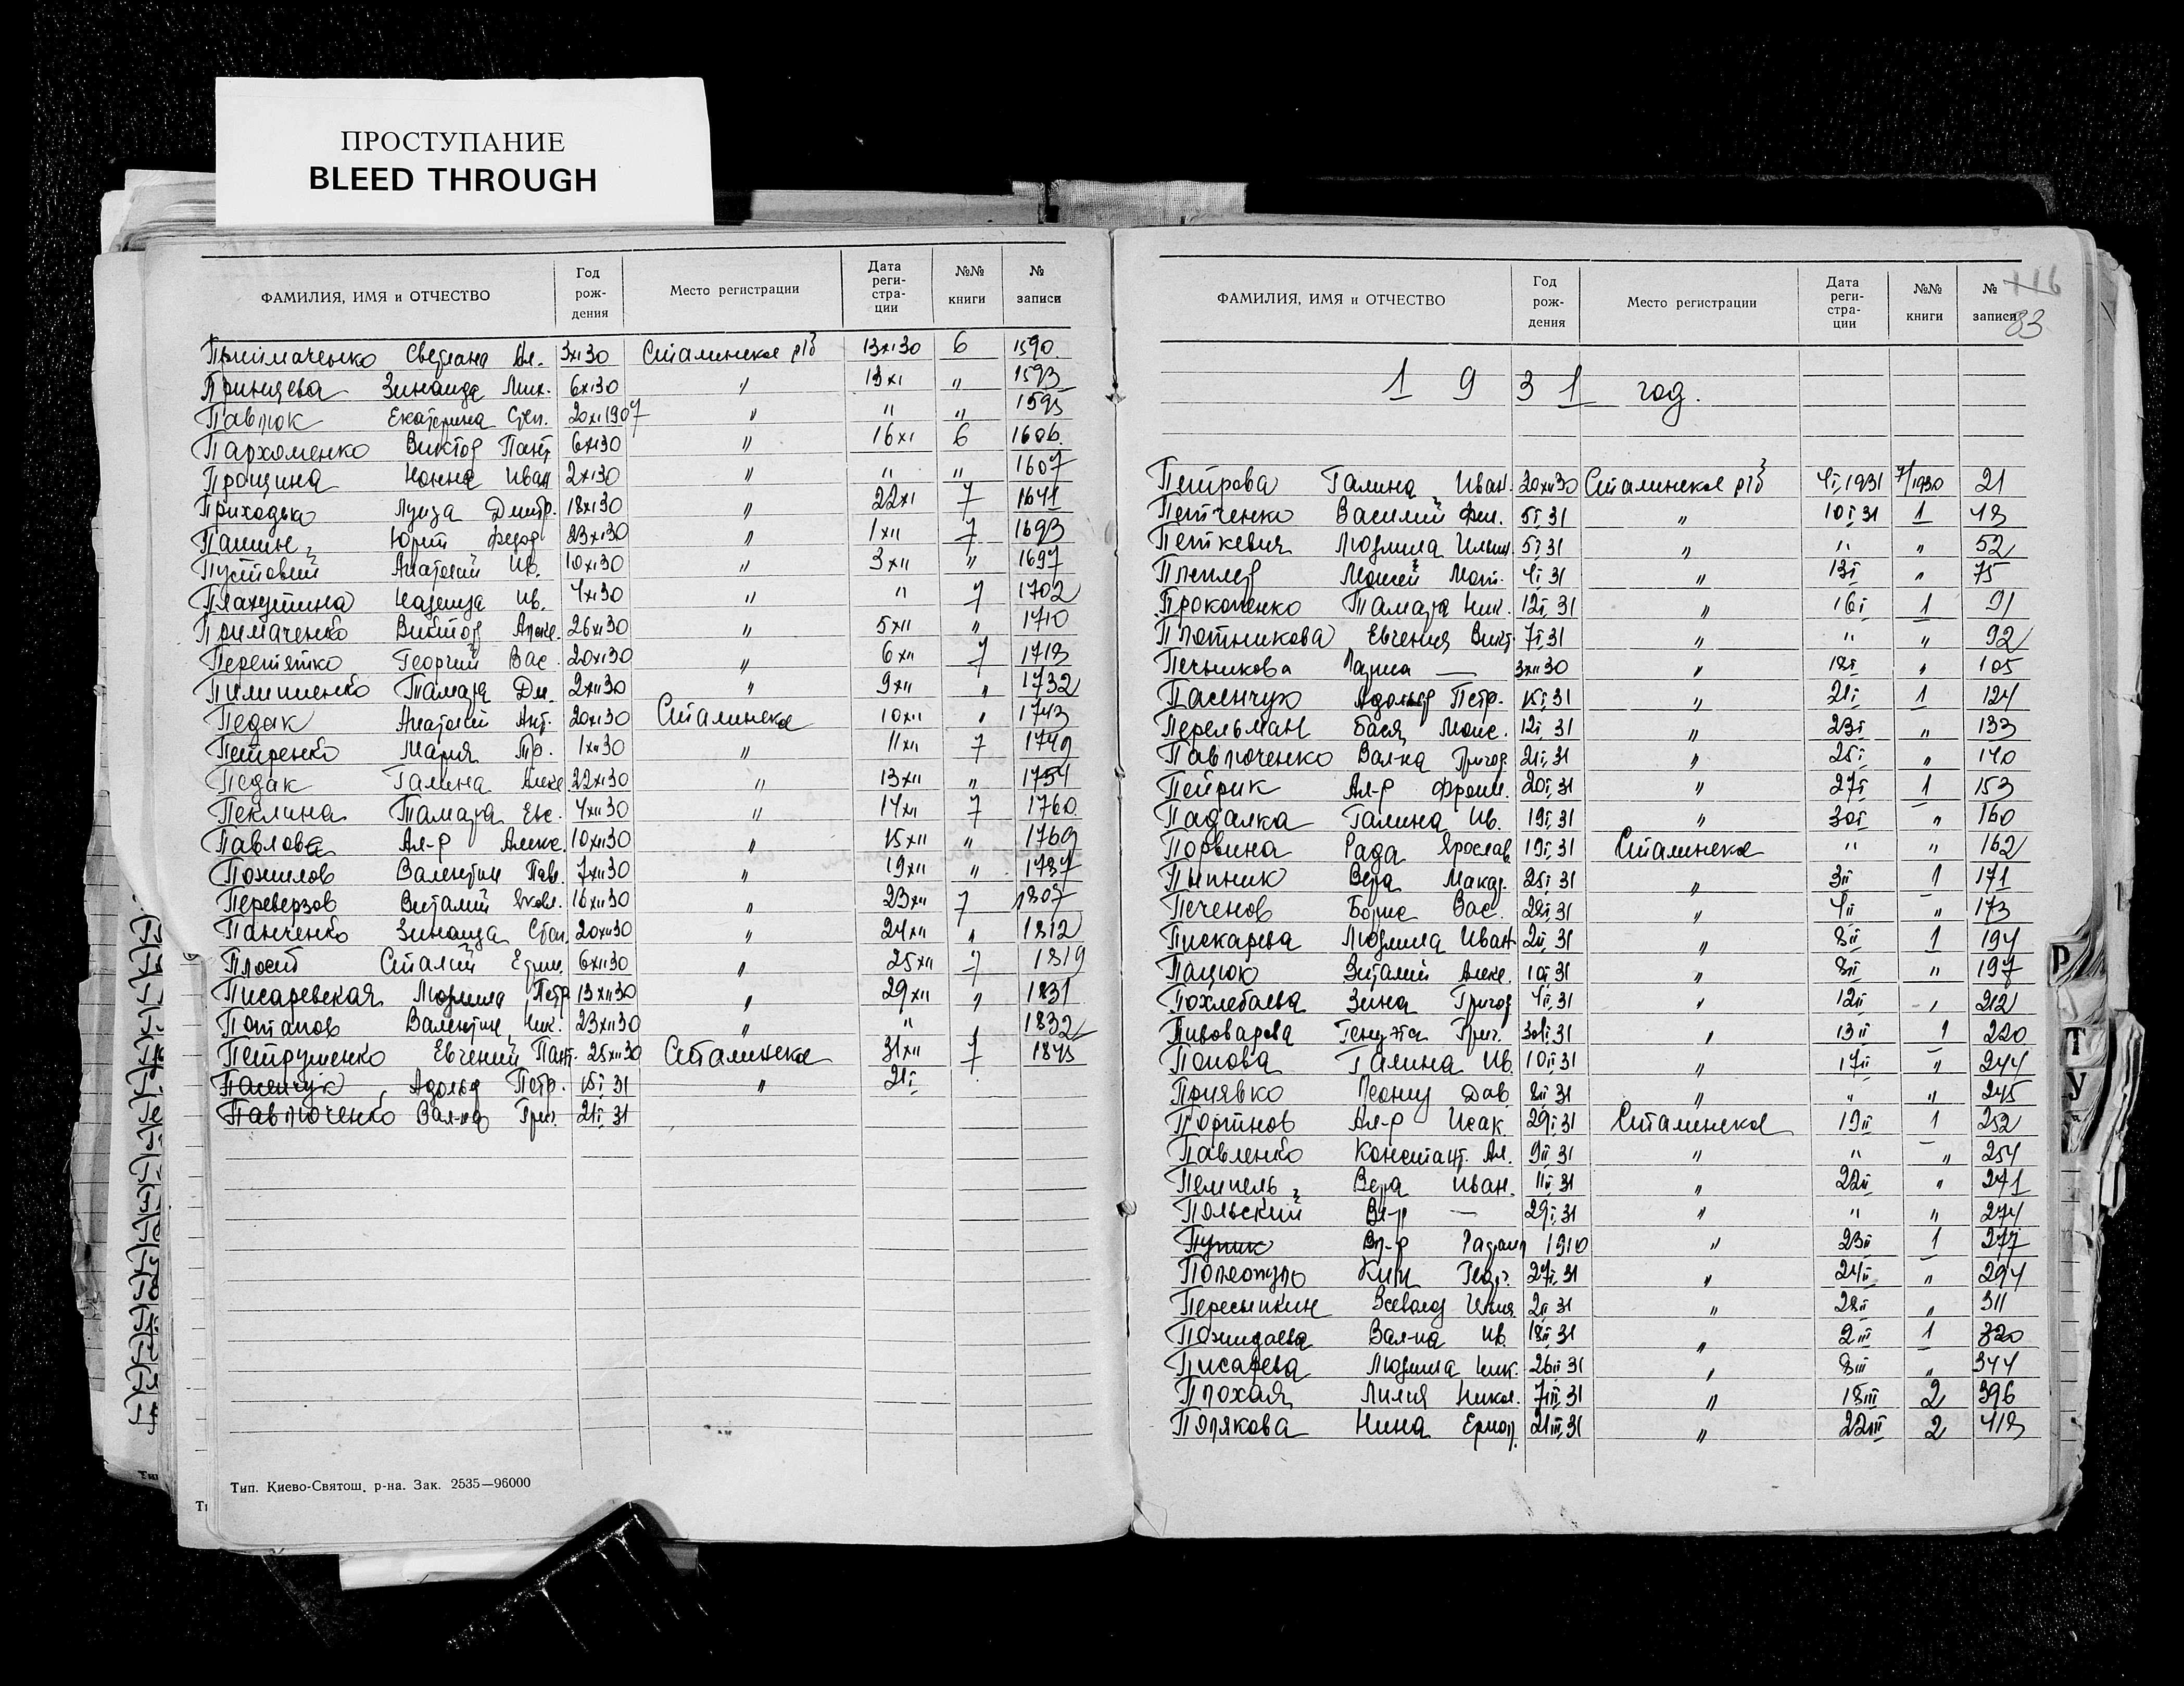 ПРОСТУПАНИЕ
BLEED THROUGH
ФАМИЛИЯ, ИМЯ и ОТЧЕСТВО Год рож- дения Место регистрации Дата реги- стра- ции №№ книги № записи
Приймаченко Светлана Ал. 3XI30 Сталинское р/б 13XI30 6 1590
Зинаида Мих. 6XI30 " 13XI " 1593
Павлюк Екатерина Степ. 20XI1907 " " " 1595
Пархоменко Виктор Пант 6XI30 " 16XI 6 1606
Прощина Нонна Иван 2XI30 " " " 1607
Приходько Луиза Дмитр. 18XI30 " 22XI 7 1641
Юрий Федор 23XI30 " 1XII 7 1693
Пустовой Анатолий Ив. 10XI30 " 3XII " 1697
Плахутина Надежда Ив. 4XI30 " " 7 1702
Примаченко Виктор Алекс. 26XI30 " 5XII " 1710
Перетятко Георгий Вас. 20XI30 " 6XII 7 1713
Пилипненко Тамара Дм. 2XII30 " 9XII " 1732
Педак Анатолий Ант. 20XI30 Сталинское 10XII " 1743
Петренко Мария Тр. 1XII30 " 11XII 7 1749
Педак Галина Алекс 22XI30 " 13XII " 1754
Пеклина Тамара Евс. 4XII30 " 14XII 7 1760
Павлова Ал-р Алекс. 10XII30 " 15XII " 1769
Пожилов Валентин Пав. 7XII30 " 19XII " 1787
Переверзов Виталий Яковл. 16XII30 " 23XII 7 1807
Панченко Зинаида Стан. 20XII30 " 24XII " 1812
Сталий 6XII30 " 25XII 7 1819
Писаревская Людмила Петр 13XII30 " 29XII " 1831
Потапов Валентин Ник. 23XII30 " " 1832
Петрушенко Евгений Пант. 25XII30 Сталинское 31XII 7 1845
Пасенчук Адольф Петр. 15I 31 " 21I
Павлюченко Вал-на Григ. 21I 31
Тип. Киево-Святош. р-на. Зак. 2535—96000
116
83
ФАМИЛИЯ, ИМЯ и ОТЧЕСТВО Год рож- дения Место регистрации Дата реги- стра- ции №№ книги № записи
1931 год.
Петрова Галина Иван. 30XII30 Сталинское р/б 4I 1931 7/1930 21
Петченко Василий Фил. 5I 31 " 10I 31 1 43
Петкевич Людмила Ильин 5I 31 " " " 52
Моисей 4I 31 " 13I " 75
Прокопенко Тамара Ник. 12I 31 " 16I 1 91
Плотникова Евгения Викт 7I 31 " " " 92
Печникова Лариса — 3XII30 " 18I " 105
Пасенчук Адольф Петр. 15I 31 " 21I 1 124
Перельман Бася Моис. 12I 31 " 23I " 133
Павлюченко Вал-на Григор 21I 31 " 25I " 140
Пейрик Ал-р 20I 31 " 27I 1 153
Падалка Галина Ив. 19I 31 " 30I " 160
Порвина Рада Ярослав 19I 31 Сталинское " " 162
Пыпник Вера Макар. 25I 31 " 3II 1 171
Печенов Борис Вас. 28I 31 " 4II " 173
Пискарева Людмила Иван 2II 31 " 8II 1 194
Пацюк Виталий Алекс. 10I 31 " 8II " 197
Похлебаева Зина Григор 4II 31 " 12II " 212
Пивоварова Григ. 30I 31 " 13II 1 220
Попова Галина Ив. 10II 31 " 17II " 244
Приявко Леонид Дав. 8II 31 " " " 245
Портнов Ал-р Исак. 29I 31 Сталинское 19II 1 252
Павленко Констант. Ал. 9II 31 " " " 254
Пемпель Вера Иван. 11II 31 " 22II " 271
Польский Вл-р — 29I 31 " " " 274
Пупик Вл-р 1910 " 23II 1 277
Ким Георг. 27I 31 " 24II " 294
Пересыпкин Всеволод Ильич 2II 31 " 28II " 311
Пожидаева Вал-на Ив. 18II 31 " 2III 1 320
Писарева Людмила Ник. 26II 31 " 8III " 344
Плохая Лилия Никол. 7III 31 " 18III 2 396
Полякова Нина Ермол. 21III 31 " 22III 2 418
Р
Т
У